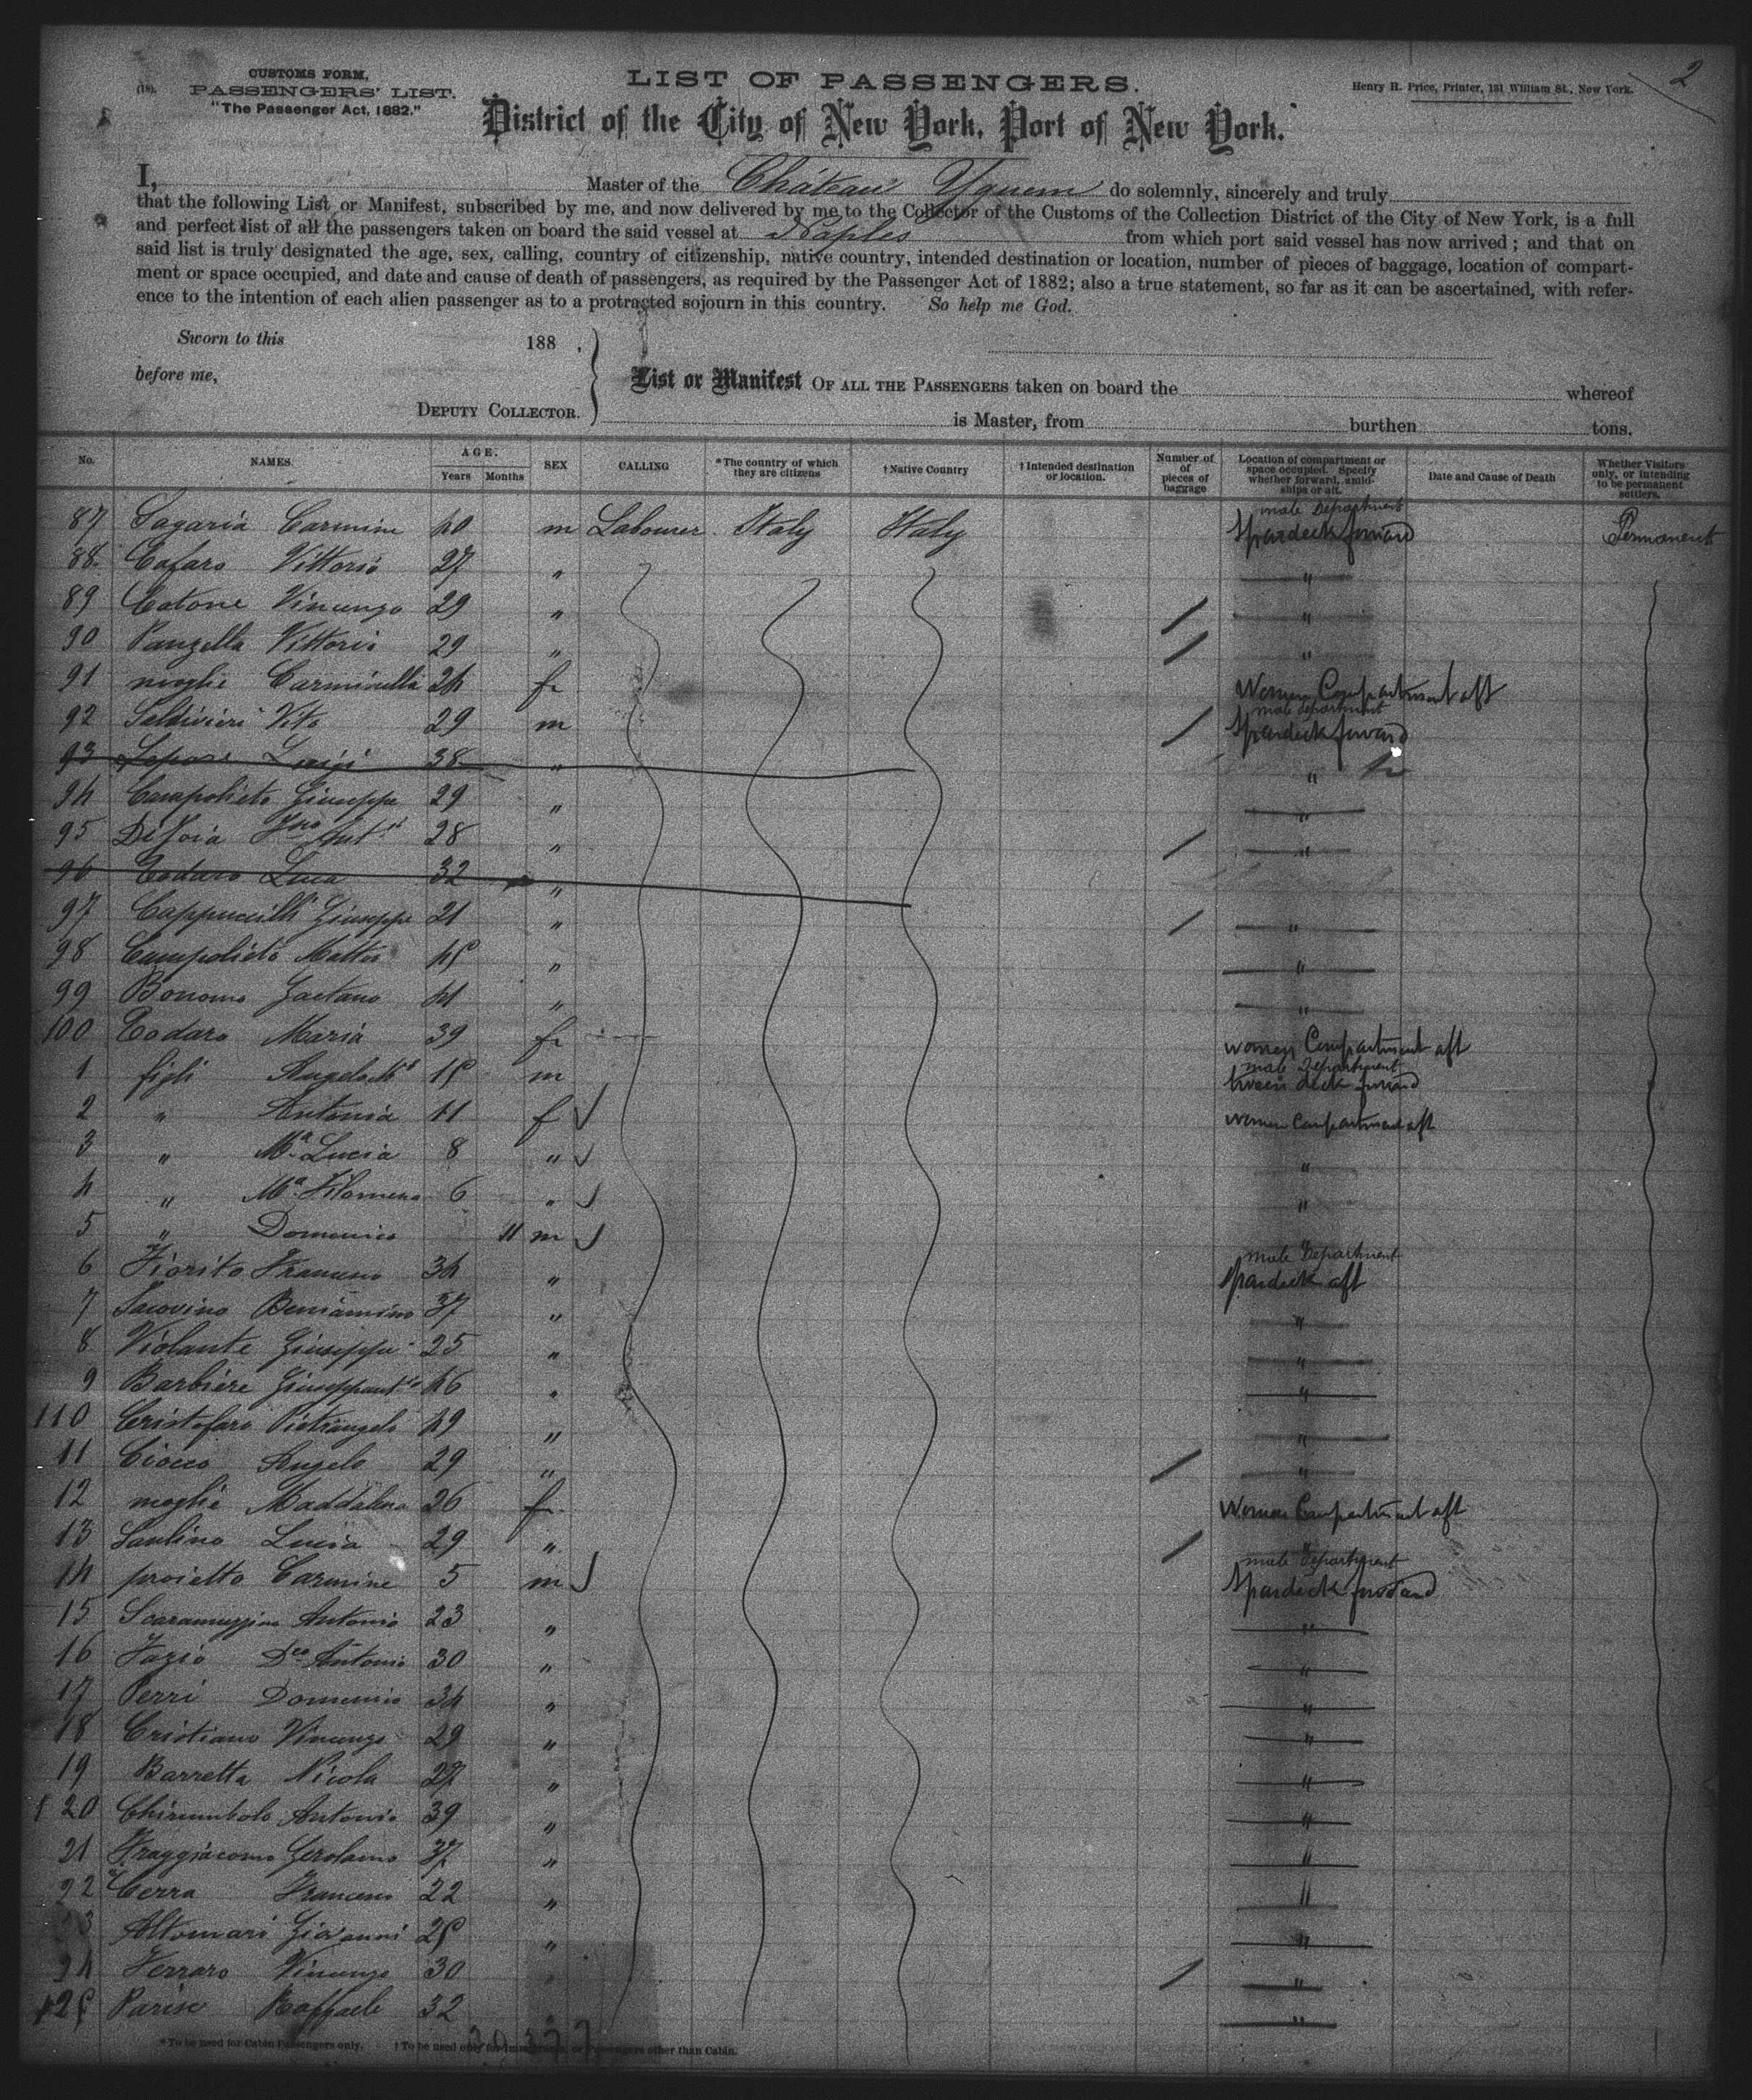 2
(18).
CUSTOMS FORM,
PASSENGERS' LIST.
"The Passenger Act, 1882."
LIST OF PASSENGERS.
Henry H. Price, Printer, 131 William St., New York.
District of the City of New York, Port of New York.
I, Master of the Château Yquem do solemnly, sincerely and truly
that the following List or Manifest, subscribed by me, and now delivered by me to the Collector of the Customs of the Collection District of the City of New York, is a full
and perfect list of all the passengers taken on board the said vessel at Naples from which port said vessel has now arrived; and that on
said list is truly designated the age, sex, calling, country of citizenship, native country, intended destination or location, number of pieces of baggage, location of compart-
ment or space occupied, and date and cause of death of passengers, as required by the Passenger Act of 1882; also a true statement, so far as it can be ascertained, with refer-
ence to the intention of each alien passenger as to a protracted sojourn in this country. So help me God.
Sworn to this 188 ,
before me,
DEPUTY COLLECTOR.
List or Manifest OF ALL THE PASSENGERS taken on board the whereof
is Master, from burthen tons.
No. NAMES. AGE. Years Months SEX CALLING *The country of which they are citizens †Native Country †Intended destination or location. Number of pieces of baggage Location of compartment or space occupied. Specify whether forward, amidships or aft. Date and Cause of Death Whether Visitors only, or intending to be permanent settlers.
87 Sagaria Carmine 40 m Labourer Italy Italy male Department Spardeck forward Permanent
88 Cafaro Vittorio 27 " "
89 Catone Vincenzo 29 " / "
90 Panzella Vittorio 29 " / "
91 moglie Carminella 24 f Women Compartment aft
92 Saldivieri Vito 29 m / male department Spardeck forward
93 Luigi 38 " "
94 Campolieto Giuseppe 29 " "
95 DiJoia Ant° 28 " / "
96 Todaro Luca 32 "
97 Cappuccilli Giuseppe 21 " / "
98 Campolieto Matteo 45 " "
99 Bonomo Gaetano 41 " "
100 Todaro Maria 39 f women Compartment aft
1 figli 15 m male Department tween deck forward
2 " Antonia 11 f women Compartment aft
3 " Mª Lucia 8 " "
4 " Mª Filomena 6 " "
5 " Domenico 11 m "
6 Fiorito Francesco 34 " male Department Spardeck aft
7 Iacovino Beniamino 37 " "
8 Violante Giuseppe 25 " "
9 Barbiere 46 " "
110 Cristofaro Pietrangelo 49 " "
11 Ciocco Angelo 29 " / "
12 moglie Maddalena 26 f Women Compartment aft
13 Santino Lucia 29 " / "
14 proietto Carmine 5 m male Department Spardeck forward
15 Scaramuzzino Antonio 23 " "
16 Fazio Dco Antonio 30 " "
17 Perri Domenico 34 " "
18 Cristiano Vincenzo 29 " "
19 Barretta Nicola 27 " "
120 Chirumbolo Antonio 39 " "
21 Fraggiacomo Gerolamo 37 " "
22 Cerra Francesco 22 " "
3 Altomari Giovanni 25 " "
24 Ferraro Vincenzo 30 / "
125 Parise Raffaele 32 "
*To be used for Cabin Passengers only. †To be used only for Immigrants, or Passengers other than Cabin.